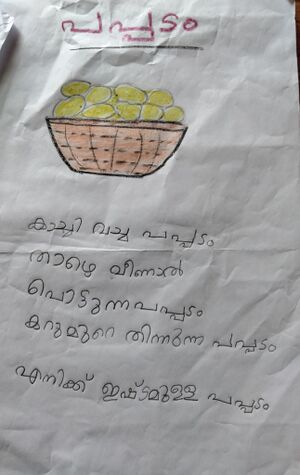 പപ്പടം
കാച്ചി വച്ച പപ്പടം
താഴെ വീണാൽ
പൊട്ടുന്നപപ്പടം
കറുമുറെ തിന്നുന്ന പപ്പടം
എനിക്ക് ഇഷ്ടമുള്ള പപ്പടം